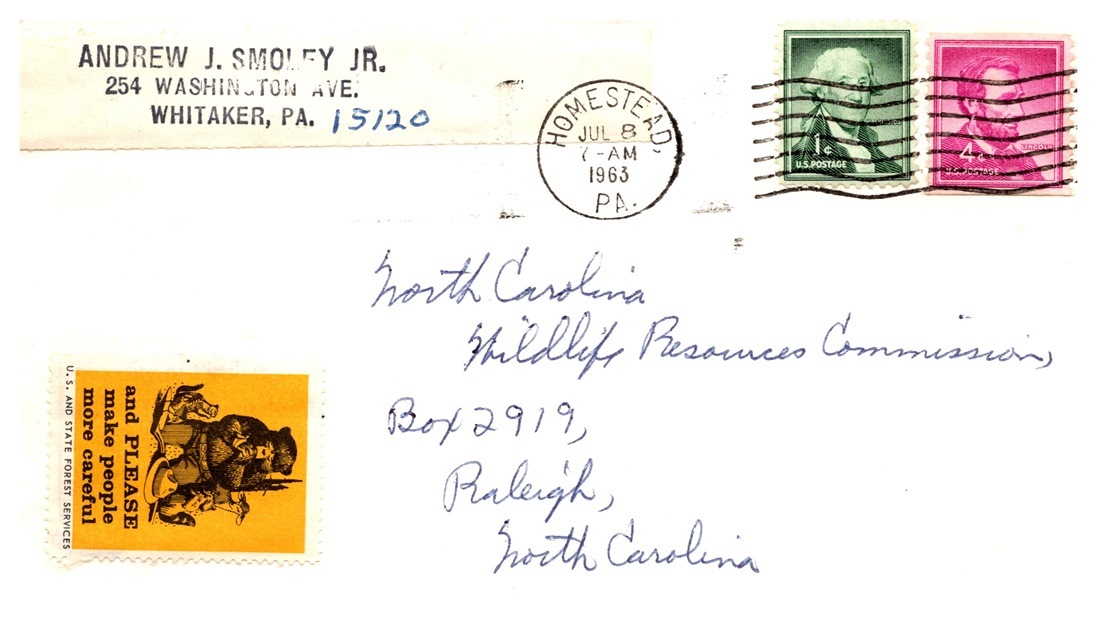 ANDREW J. SMOLEY JR.
254 WASHINGTON AVE.
WHITAKER, PA. 15120
HOMESTEAD,
JUL 8
7-AM
1963
PA.
1¢
U.S. POSTAGE
4¢
LINCOLN
U.S. POSTAGE
North Carolina
Wildlife Resources Commission,
Box 2919,
Raleigh,
North Carolina
and PLEASE
make people
more careful
U.S. AND STATE FOREST SERVICES